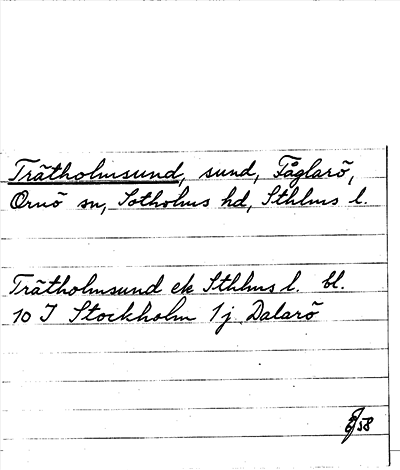 Trätholmsund, sund, Fåglarö,
Ornö sn, Sotholms hd, Sthlms l.
Trätholmsund ek Sthlms l. bl.
10 I Stockholm 1j Dalarö
58